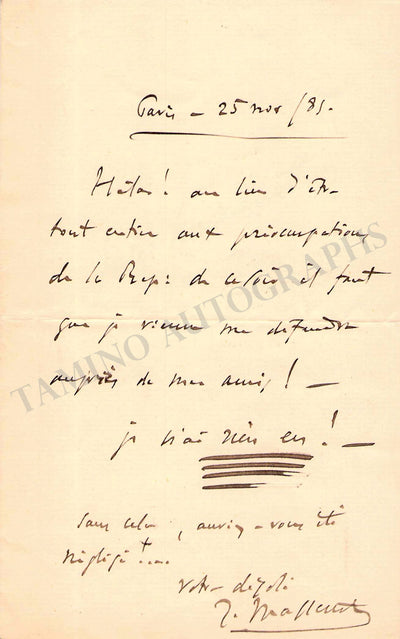 Paris - 25 nov /85.
Hélas! au lieu d'être
tout entier aux préoccupations
de la Rép: de ce soir il faut
que je vienne me défendre
auprès de mes amis! —
je n'ai rien eu! —
Sans cela, auriez-vous été
négligé!...
votre désolé
J. Massenet
TAMINO AUTOGRAPHS